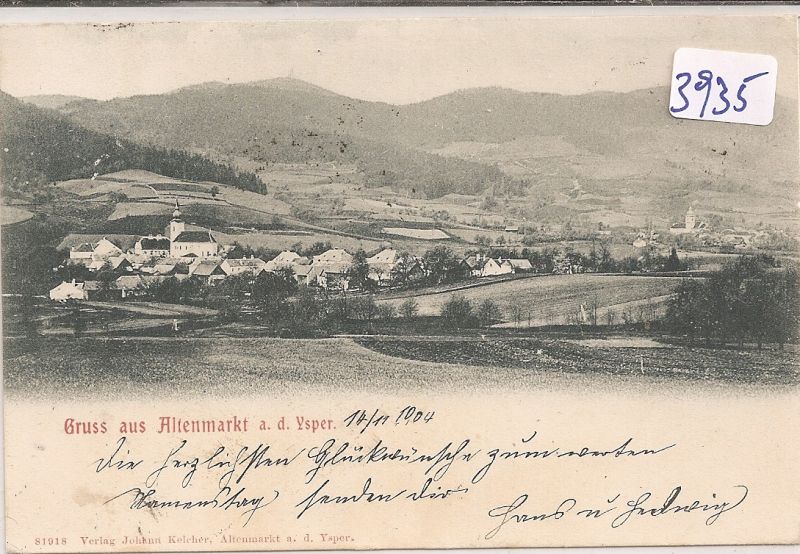 3935
Gruss aus Altenmarkt a. d. Ysper. 14/11 1904
Die herzlichsten Glückwünsche zum werten
Namenstag senden dir
Hans u Hedwig
81918 Verlag Johann Kelcher, Altenmarkt a. d. Ysper.